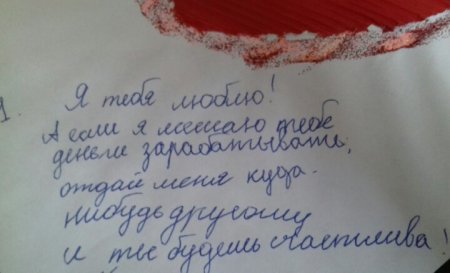 1.
Я тебя люблю!
А если я мешаю тебе
деньги зарабатывать,
отдай меня куда-
нибудь другому
и ты будешь счастлива!